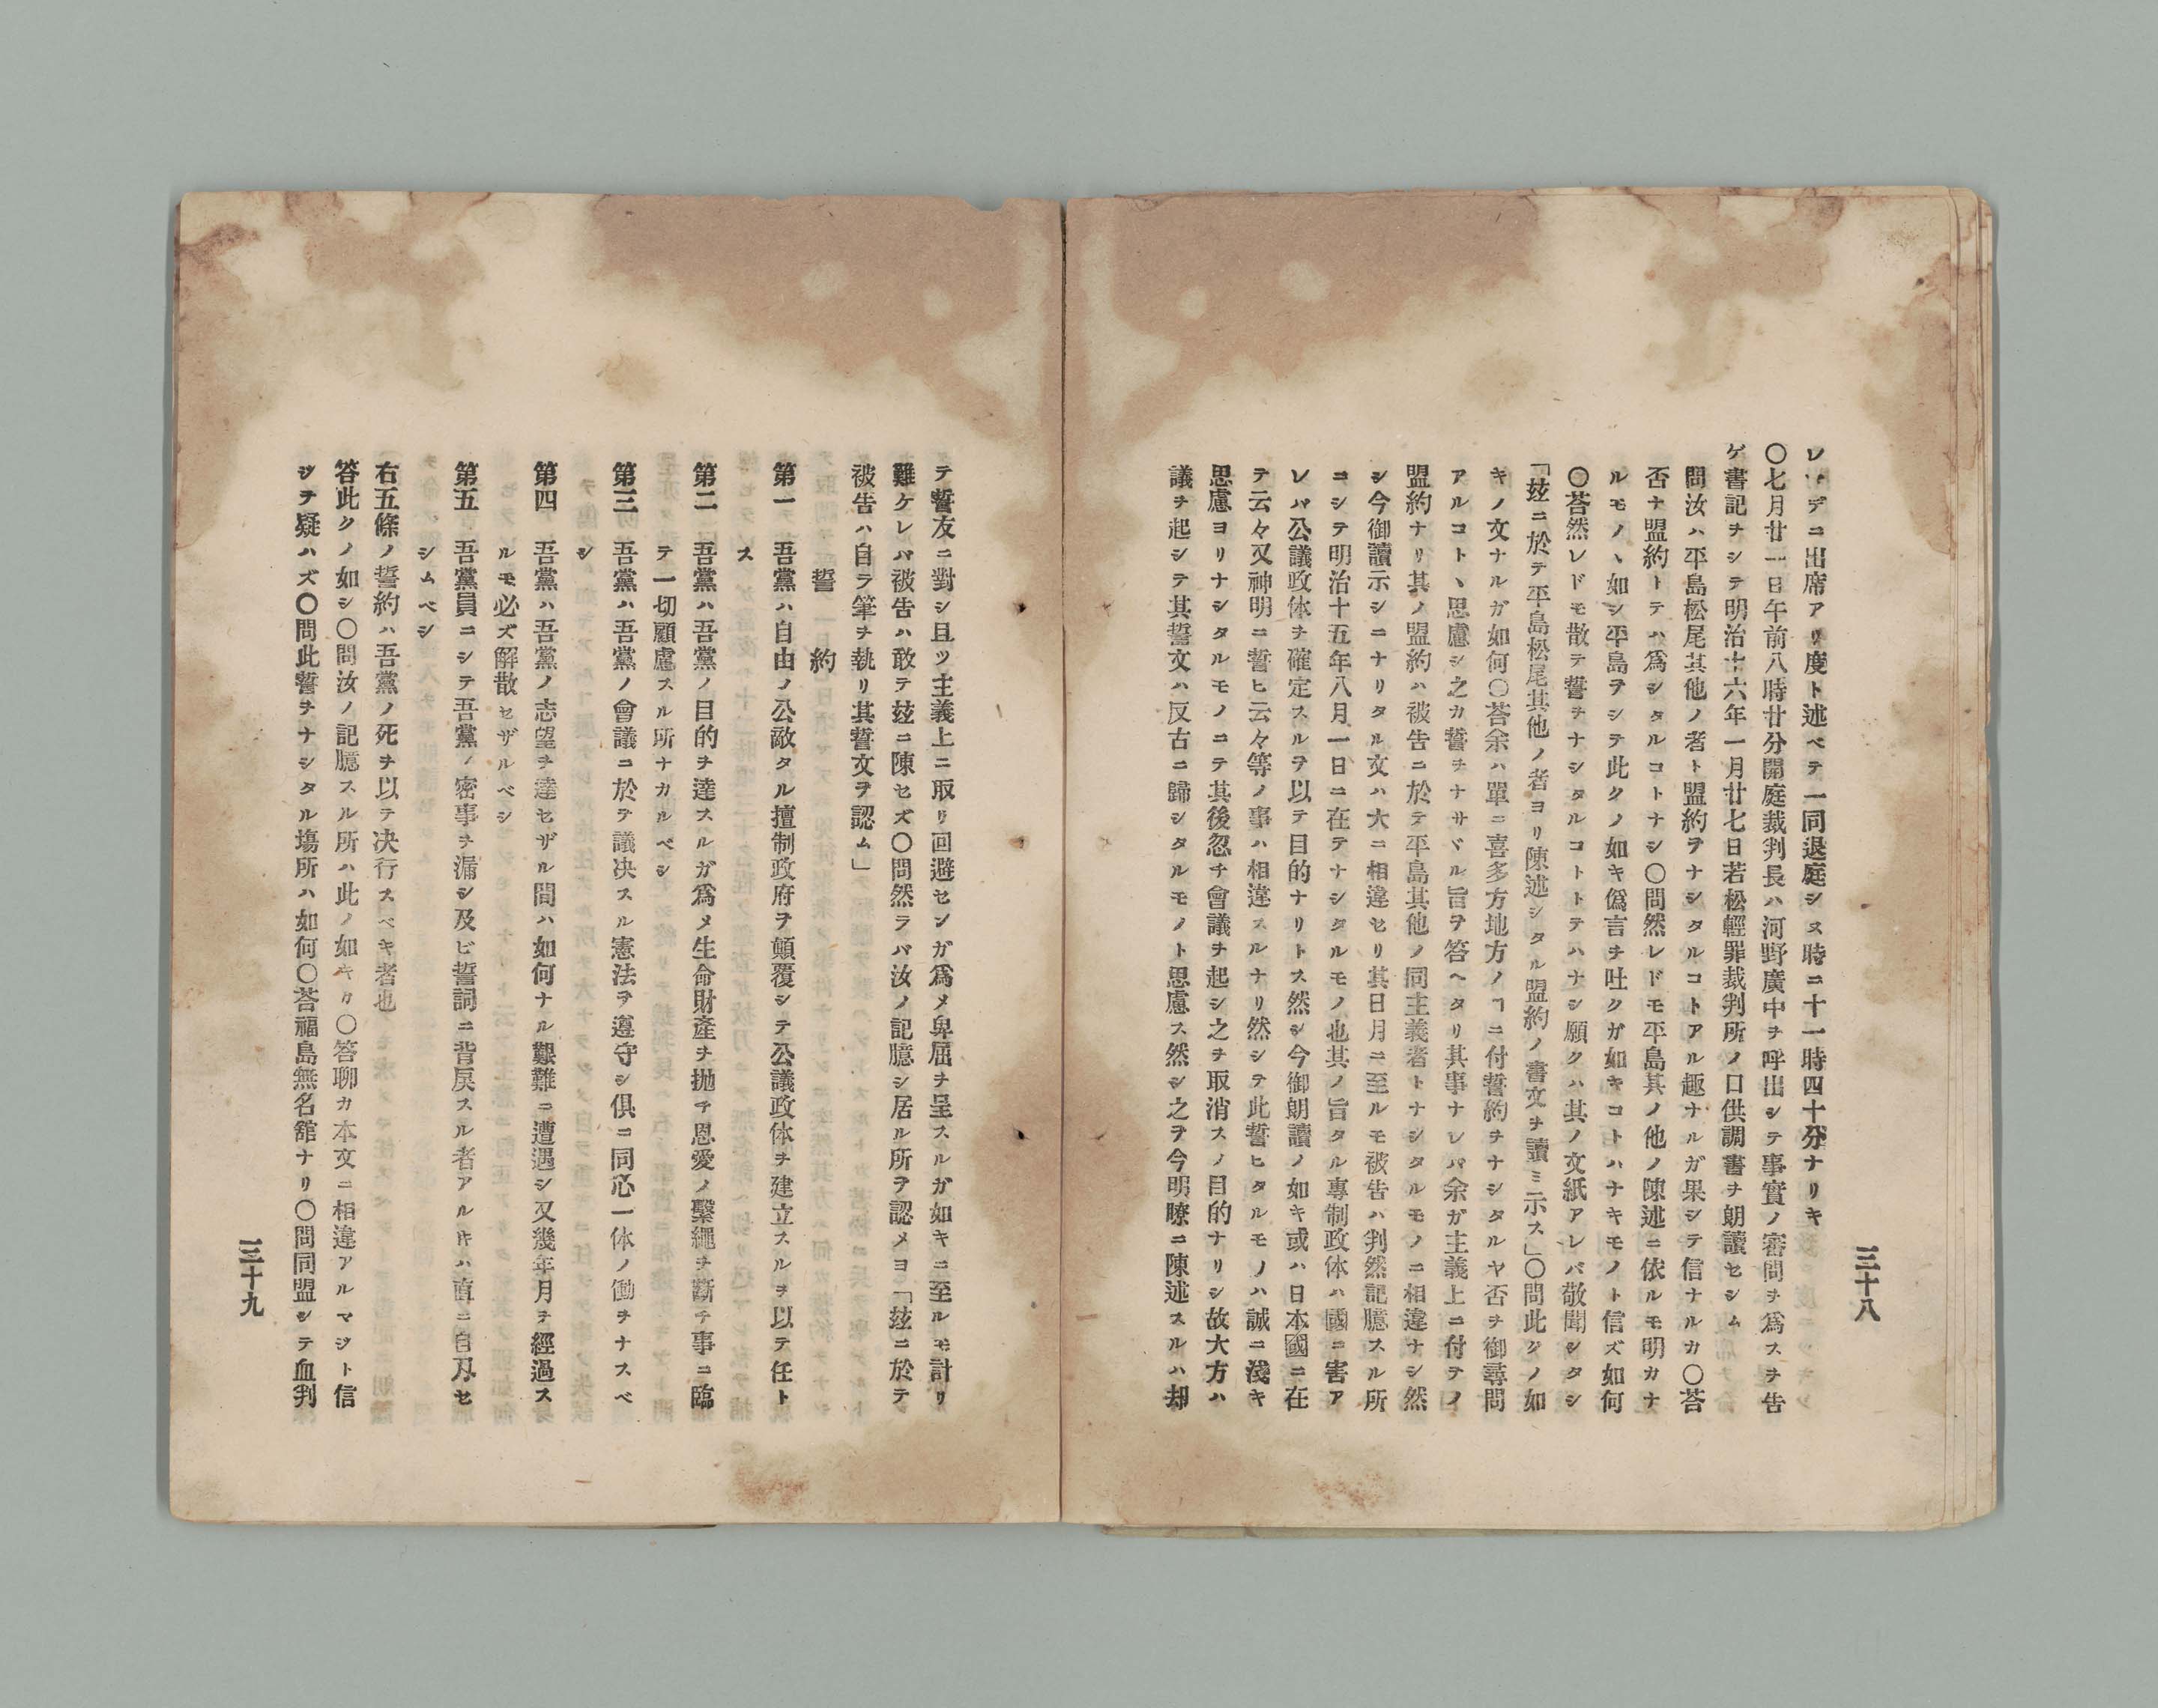 三十八
レマデニ出席アリ度ト述ベテ一同退庭シヌ時ニ十一時四十分ナリキ
〇七月廿一日午前八時廿分開庭裁判長ハ河野廣中ヲ呼出シテ事實ノ審問ヲ爲スヲ告
ケ書記ヲシテ明治十六年一月廿七日若松輕罪裁判所ノ口供調書ヲ朗讀セシム
問汝ハ平島松尾其他ノ者ト盟約ヲナシタルコトアル趣ナルガ果シテ信ナルカ〇荅
否ナ盟約トテハ爲シタルコトナシ〇問然レドモ平島其ノ他ノ陳述ニ依ルモ明カナ
ルモノヽ如シ平島ヲシテ此クノ如キ僞言ヲ吐クガ如キコトハナキモノト信ズ如何
〇荅然レドモ散テ誓ヲナシタルコトトテハナシ願クハ其ノ文紙アレバ敬聞シタシ
「玆ニ於テ平島松尾其他ノ者ヨリ陳述シタル盟約ノ書文ヲ讀ミ示ス」〇問此クノ如
キノ文ナルガ如何〇荅余ハ單ニ喜多方地方ノヿニ付誓約ヲナシタルヤ否ヲ御尋問
アルコトヽ思慮シ之カ誓ヲナサヾル旨ヲ答ヘタリ其事ナレバ余ガ主義上ニ付テノ
盟約ナリ其ノ盟約ハ被告ニ於テ平島其他ノ同主義者トナシタルモノニ相違ナシ然
シ今御讀示シニナリタル文ハ大ニ相違セリ其日月ニ至ルモ被告ハ判然記臆スル所
ニシテ明治十五年八月一日ニ在テナシタルモノ也其ノ旨タル專制政体ハ國ニ害ア
レバ公議政体ヲ確定スルヲ以テ目的ナリトス然シ今御朗讀ノ如キ或ハ日本國ニ在
テ云々又神明ニ誓ヒ云々等ノ事ハ相違スルナリ然シテ此誓ヒタルモノハ誠ニ淺キ
思慮ヨリナシタルモノニテ其後忽チ會議ヲ起シ之ヲ取消スノ目的ナリシ故大方ハ
議ヲ起シテ其誓文ハ反古ニ歸シタルモノト思慮ス然シ之ヲ今明瞭ニ陳述スルハ却
テ誓友ニ對シ且ツ主義上ニ取リ回避センガ爲メ卑屈ヲ呈スルガ如キニ至ルモ計リ
難ケレバ被告ハ敢テ玆ニ陳セズ〇問然ラバ汝ノ記臆シ居ル所ヲ認メヨ「玆ニ於テ
被告ハ自ラ筆ヲ執リ其誓文ヲ認ム」
誓約
第一　吾黨ハ自由ノ公敵タル擅制政府ヲ顛覆シテ公議政体ヲ建立スルヲ以テ任ト
ス
第二　吾黨ハ吾黨ノ目的ヲ達スルガ爲メ生命財產ヲ抛チ恩愛ノ繫繩ヲ斷チ事ニ臨
テ一切顧慮スル所ナカルベシ
第三　吾黨ハ吾黨ノ會議ニ於テ議决スル憲法ヲ遵守シ倶ニ同心一体ノ働ヲナスベ
シ
第四　吾黨ハ吾黨ノ志望ヲ達セザル間ハ如何ナル艱難ニ遭遇シ又幾年月ヲ經過ス
ルモ必ズ解散セザルベシ
第五　吾黨員ニシテ吾黨ノ密事ヲ漏シ及ビ誓詞ニ背戾スル者アルトキハ直ニ自刄セ
シムベシ
右五條ノ誓約ハ吾黨ノ死ヲ以テ决行スベキ者也
答此クノ如シ〇問汝ノ記臆スル所ハ此ノ如キカ〇答聊カ本文ニ相違アルマジト信
ジテ疑ハズ〇問此誓ヲナシタル塲所ハ如何〇荅福島無名舘ナリ〇問同盟シテ血判
三十九